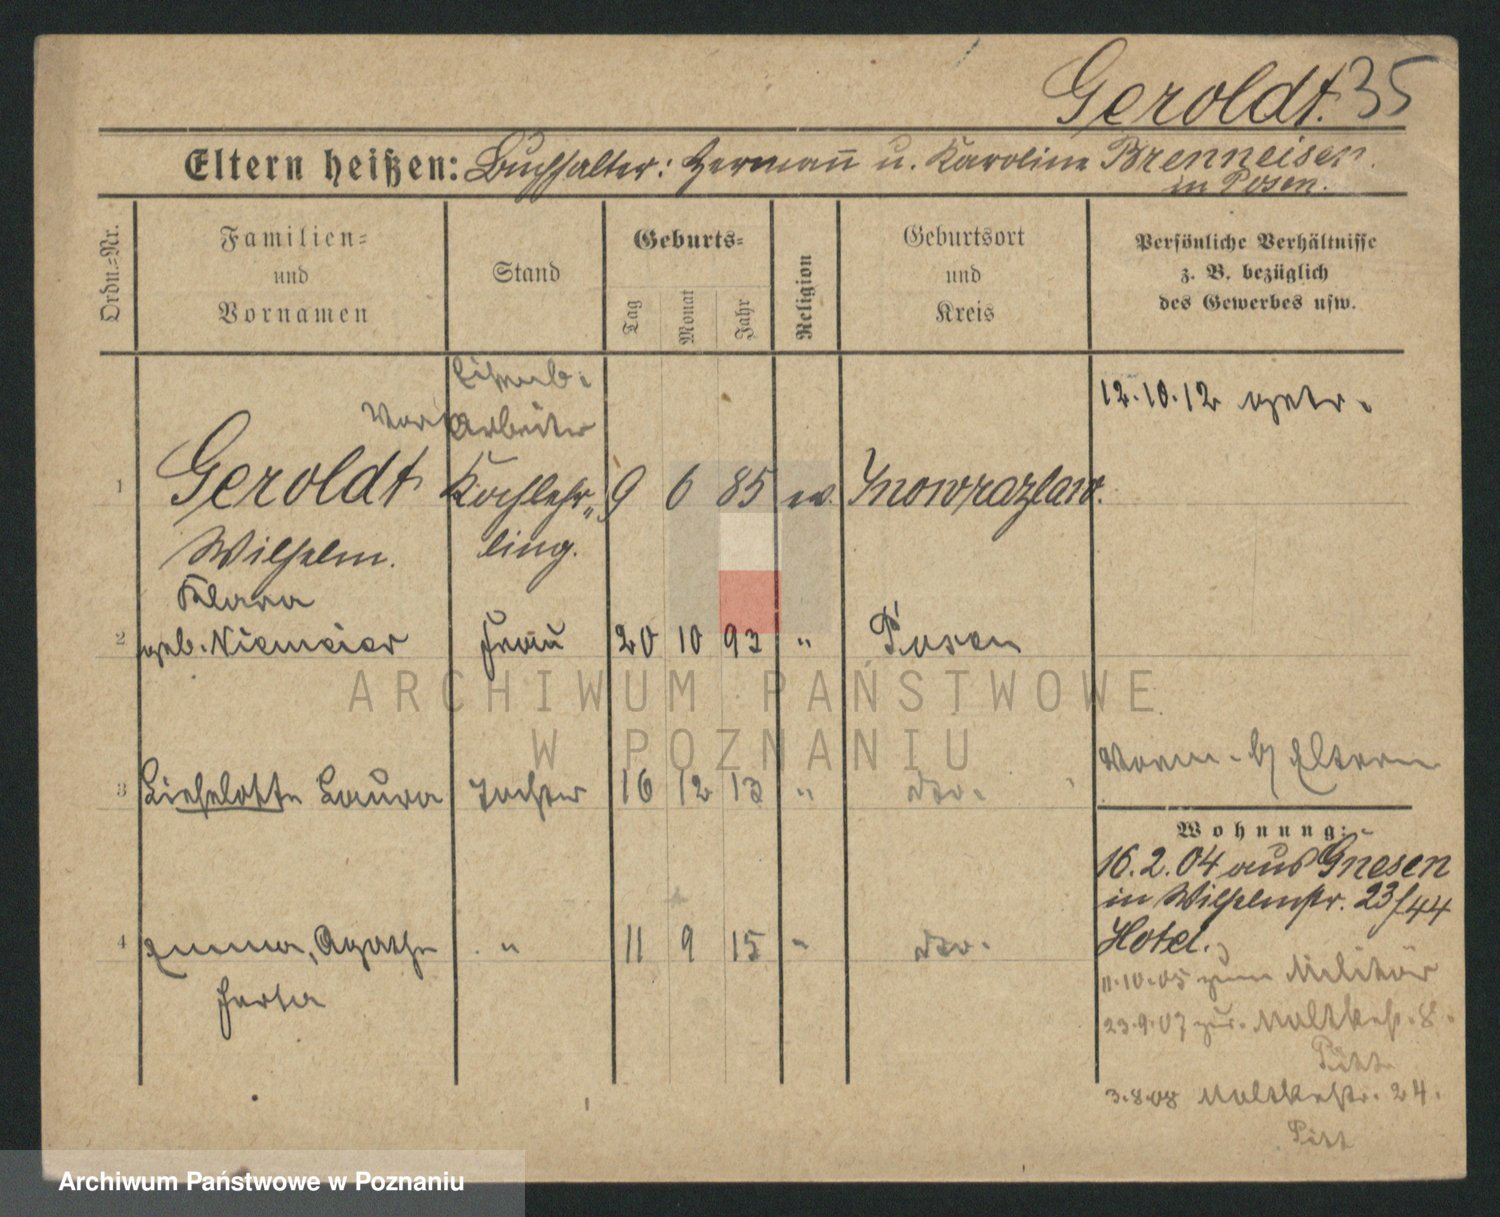 Geroldt. 35
Eltern heißen: Buchhalter: Hermann u. Karoline Brenneisen
in Posen.
Ordn.-Nr.
Familien-
und
Vornamen
Stand
Geburts-
Tag
Monat
Jahr
Religion
Geburtsort
und
Kreis
Persönliche Verhältnisse
z. B. bezüglich
des Gewerbes usw.
Eisenb.
Arbeiter
12.10.12 getr.
1 Geroldt Kochlehr- 9 6 85 ev. Inowrazlaw.
Wilhelm. ling.
Klara
2 geb. Niemeier Frau 20 10 93 " Posen
ARCHIWUM PAŃSTWOWE
W POZNANIU
3 Lieselotte Laura Tochter 16 12 13 " dto.
Eltern
Wohnung:
16.2.04 aus Gnesen
in Wilhelmstr. 23/44
Hotel.
4 Emma, Agathe " 11 9 15 " dto.
Herta
11.10.05 zum Militär
23.9.07 zur. Moltkestr. 8.
3.8.08 Moltkestr. 24.
Archiwum Państwowe w Poznaniu